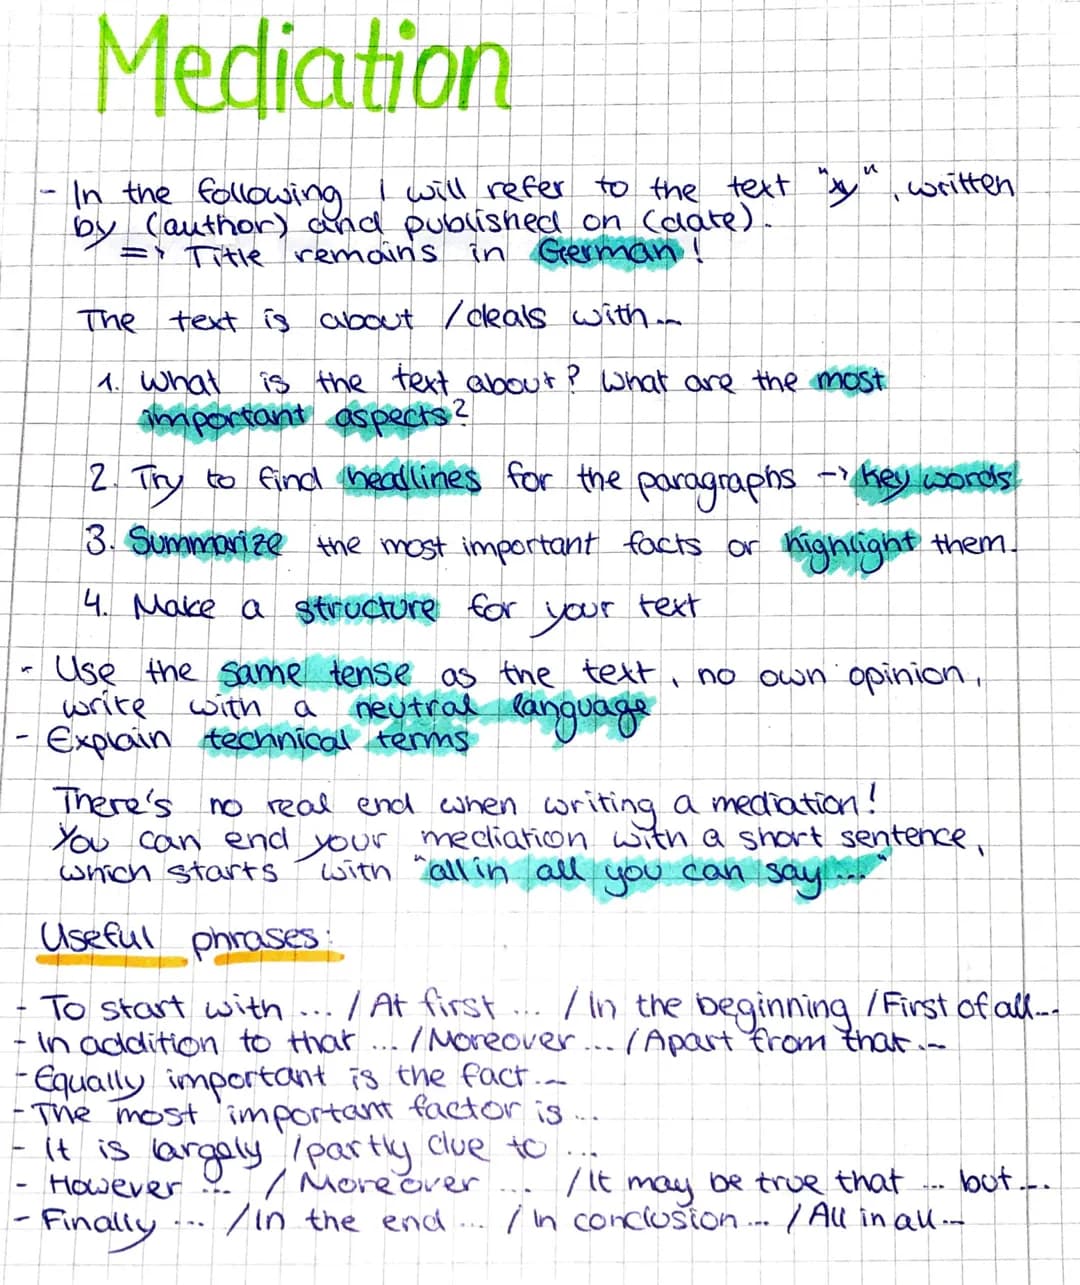 Mediation
- In the following I will refer to the text "xy", written
by (author) and published on (date).
=> Title remains in German!
The text is about /deals with...
1. What is the text about? What are the most
important aspects?
2. Try to find headlines for the paragraphs -> key words
3. Summarize the most important facts or highlight them.
4. Make a structure for your text
- Use the same tense as the text, no own opinion,
write with a neutral language
- Explain technical terms
There's no real end when writing a mediation!
You can end your mediation with a short sentence,
which starts with "all in all you can say..."
Useful phrases:
- To start with ... / At first ... / In the beginning / First of all...
- In addition to that ... / Moreover ... / Apart from that...
- Equally important is the fact...
- The most important factor is...
- It is largely /partly due to ...
- However ... / Moreover ... / It may be true that ... but...
- Finally ... / In the end ... / In conclusion ... / All in all...